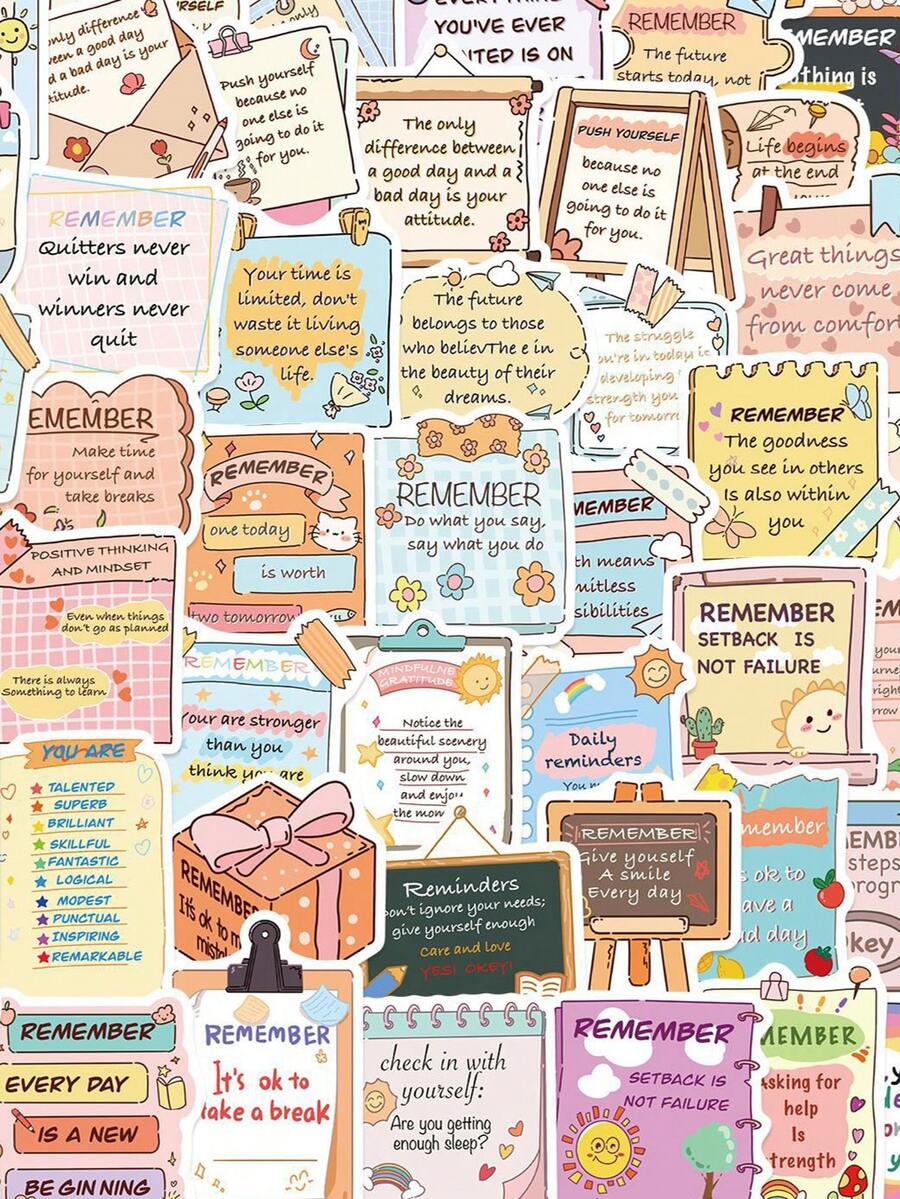 only difference
een a good day
d a bad day is your
titude.
RSELF
only
Push yourself
because no
one else is
going to do it
for you.
YOU'VE EVER
ITED IS ON
REMEMBER
The future
starts today, not
MEMBER
othing is
The only
difference between
a good day and a
bad day is your
attitude.
PUSH YOURSELF
because no
one else is
going to do it
for you.
Life begins
at the end
REMEMBER
Quitters never
win and
winners never
quit
Your time is
limited, don't
waste it living
someone else's
life.
The future
belongs to those
who believThe e in
the beauty of their
dreams.
The struggle
ou're in today is
developing
strength you
for tomorr
Great things
never come
from comfort
EMEMBER
Make time
for yourself and
take breaks
REMEMBER
one today
is worth
two tomorrow
REMEMBER
Do what you say,
say what you do
MEMBER
th means
mitless
sibilities
REMEMBER
The goodness
you see in others
Is also within
you
POSITIVE THINKING
AND MINDSET
Even when things
don't go as planned
There is always
Something to learn
REMEMBER
Your are stronger
than you
think you are
MINDFULNE
GRATITUDE
Notice the
beautiful scenery
around you,
slow down
and enjoy
the mom
Daily
reminders
REMEMBER
SETBACK IS
NOT FAILURE
YOU ARE
TALENTED
SUPERB
BRILLIANT
SKILLFUL
FANTASTIC
LOGICAL
MODEST
PUNCTUAL
INSPIRING
REMARKABLE
REMEMBER
It's ok to m
mista
Reminders
Don't ignore your needs;
give yourself enough
care and love
YES! OKEY!
REMEMBER
Give youself
A smile
Every day
member
s ok to
ave a
ad day
EMB
steps
rogr
key
REMEMBER
EVERY DAY
IS A NEW
BEGINNING
REMEMBER
It's ok to
take a break
check in with
yourself:
Are you getting
enough sleep?
REMEMBER
SETBACK IS
NOT FAILURE
MEMBER
Asking for
help
Is
trength